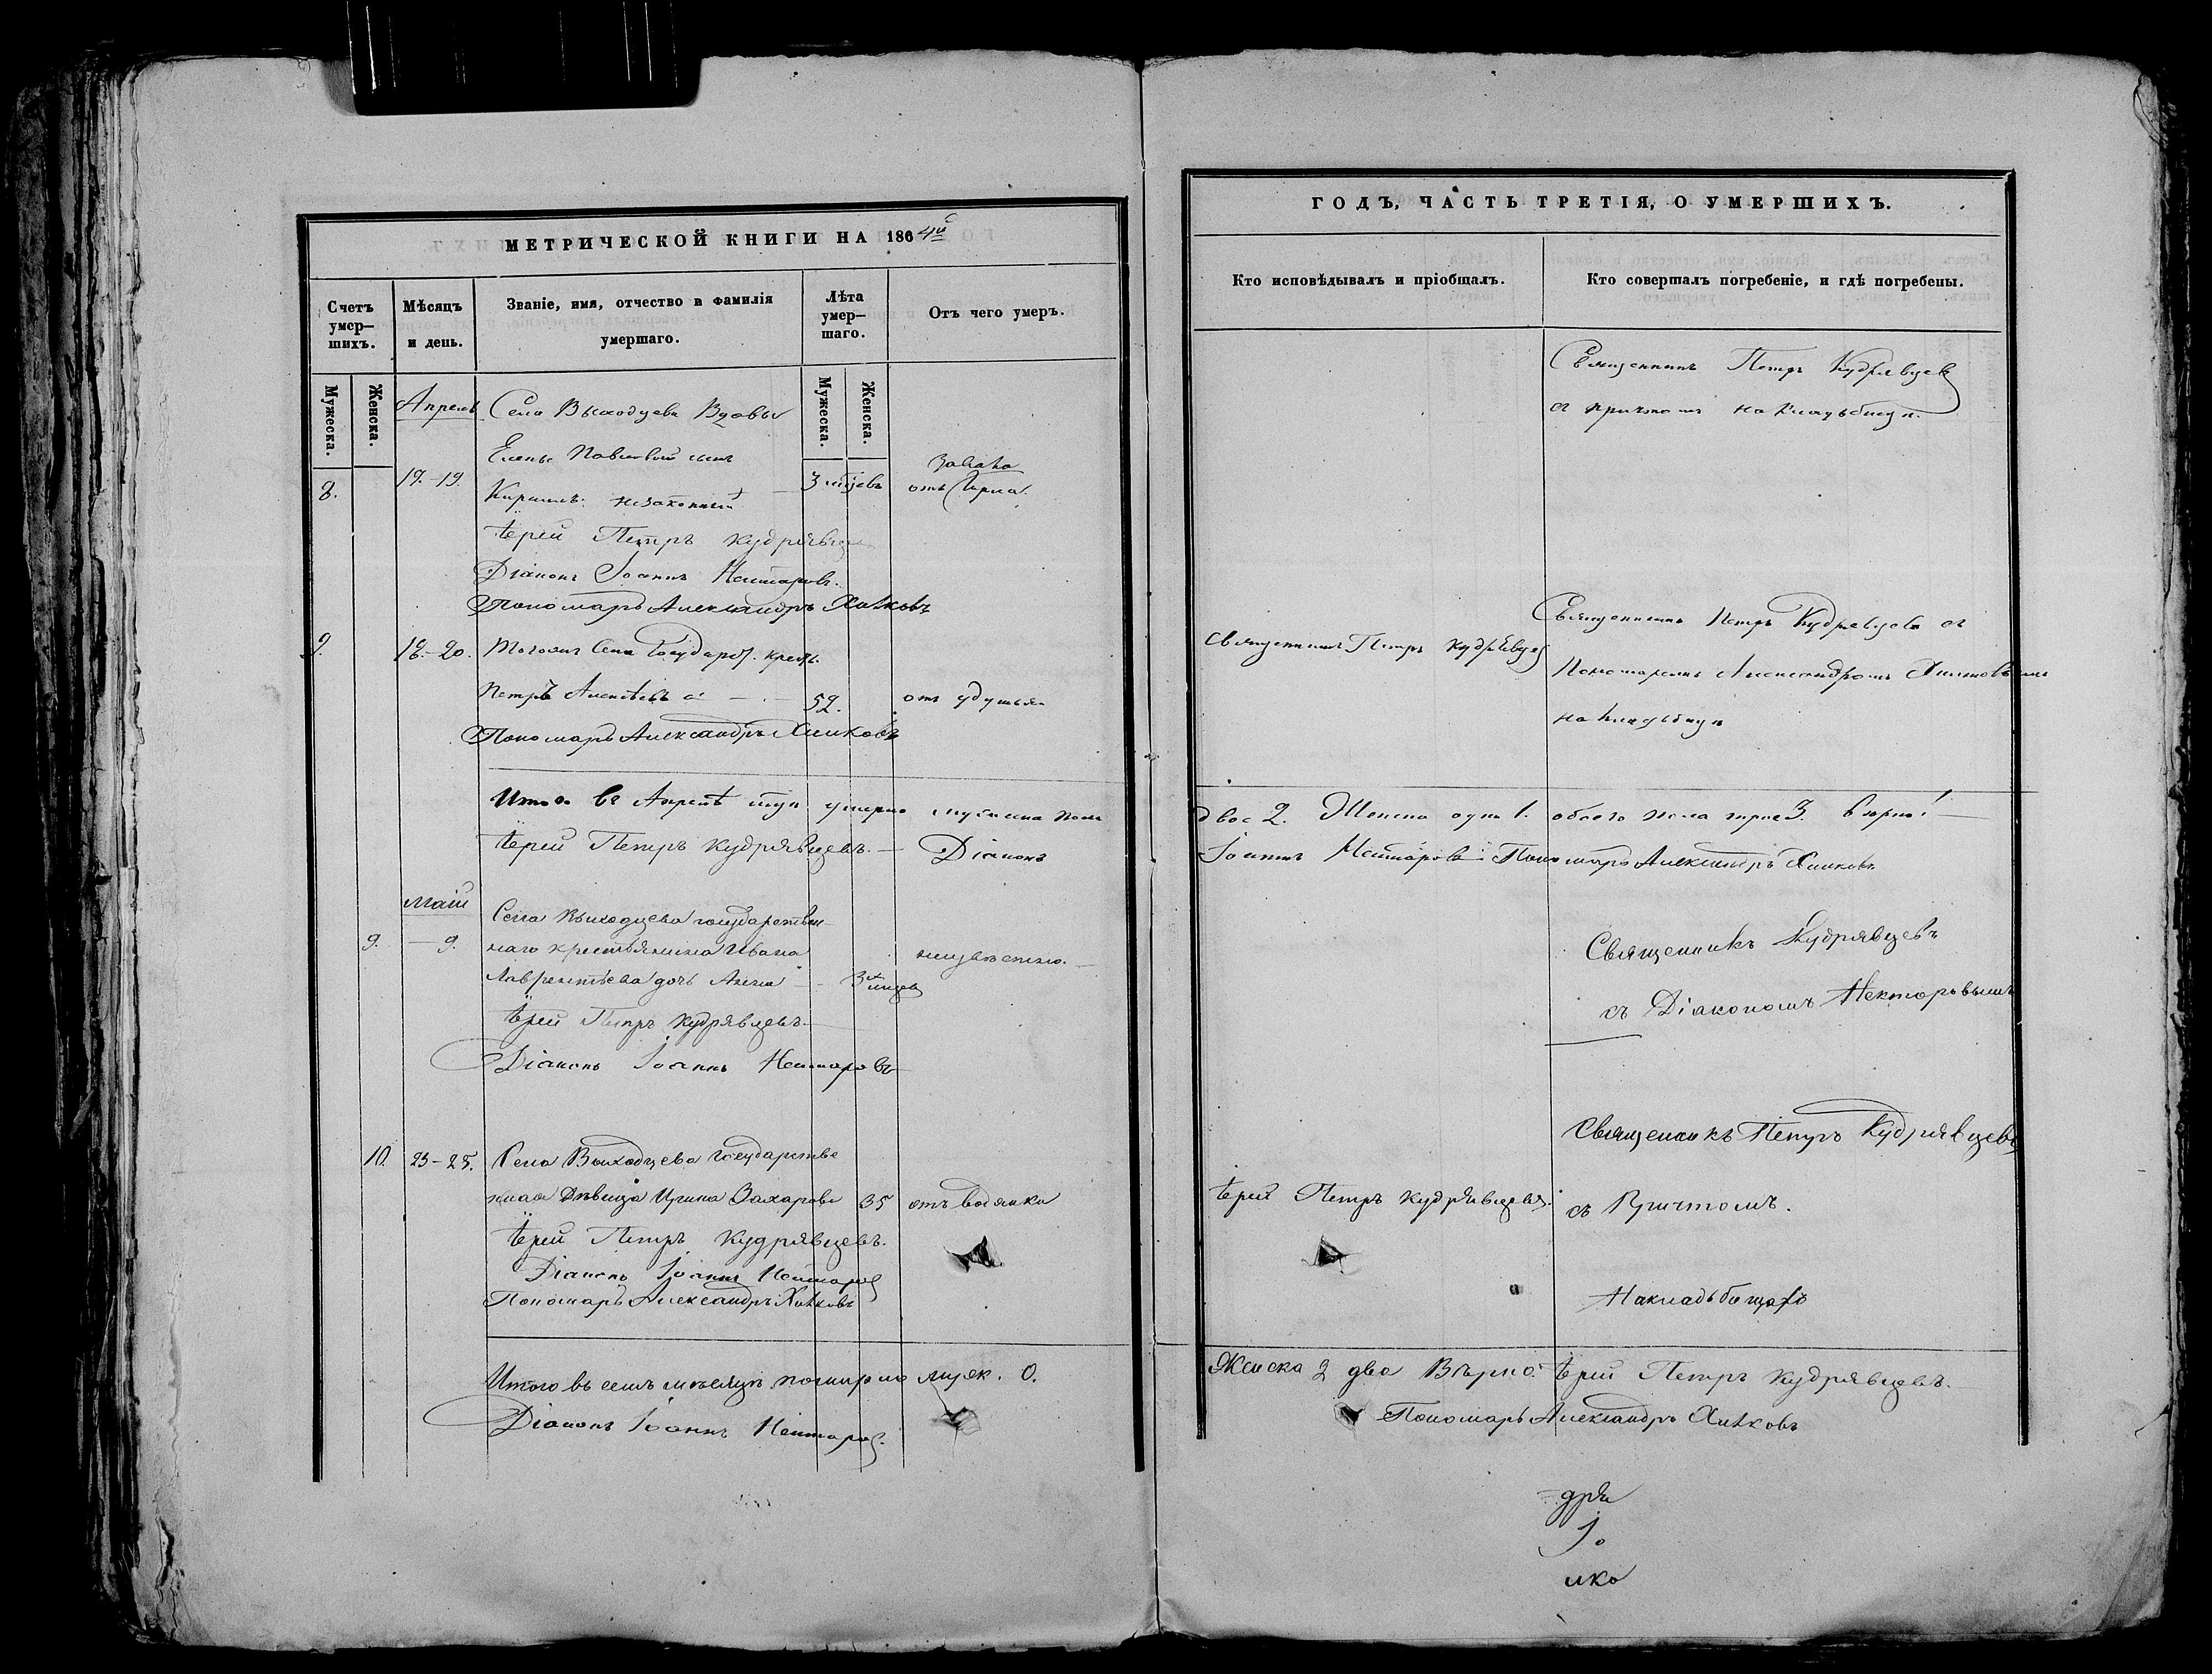 МЕТРИЧЕСКОЙ КНИГИ НА 1864й
Счетъ умер–шихъ.
Мѣсяцъ и день.
Званіе, имя, отчество и фамилія умершаго.
Лѣта умер–шаго.
Отъ чего умеръ.
Мужеска.
Женска.
Мужеска.
Женска.
Апрель
Села Выходцева Вдовы
Елены Павловой сынъ
8. 17.–19. Кириллъ незаконный 3 отъ
Іерей Петръ Кудрявцевъ
Діаконъ Іоаннъ Нектаровъ.
Пономарь Александръ Хитковъ
9. 18.–20. Тогожъ Села Государ. крест.
Петръ Алексѣевъ 52. отъ удушья
Пономарь Александръ Хитковъ
Итого въ Апрелѣ умерло мужеска пола
Іерей Петръ Кудрявцевъ. Діаконъ
Май
Села Выходцева государствен
9. — 9. наго крестьянина Ивана неизвѣстно.
Лаврентьева дочь Анна 3х
Іерей Петръ Кудрявцевъ
Діаконъ Іоаннъ Нектаровъ
10. 23–25. Села Выходцева Государстве
нная Дѣвица Ирина Захарова 35 отъ водянки
Іерей Петръ Кудрявцевъ.
Діаконъ Іоаннъ Нектаровъ
Пономарь Александръ Хитковъ
Итого въ семъ мѣсяцѣ померло муж. 0.
Діаконъ Іоаннъ Нектаровъ.
ГОДЪ, ЧАСТЬ ТРЕТІЯ, О УМЕРШИХЪ.
Кто исповѣдывалъ и пріобщалъ.
Кто совершалъ погребеніе, и гдѣ погребены.
Священникъ Петръ Кудрявцевъ
съ причтомъ на кладьбищѣ.
Священникъ Петръ Кудрявцевъ съ
Священникъ Петръ Кудрявцевъ
Пономаремъ Александромъ Хитковымъ
на кладьбищѣ
двое 2. Женска одна 1. обоего пола трое 3. Вѣрно!
Іоаннъ Нектаровъ Пономарь Александръ Хитковъ
Священникъ Кудрявцевъ
съ Діакономъ Нектаровымъ
Священникъ Петръ Кудрявцевъ
Іерей Петръ Кудрявцевъ. съ Причтомъ.
На кладьбищѣ
Женска 2 два Вѣрно. Іерей Петръ Кудрявцевъ.
Пономарь Александръ Хитковъ
дря
Іо
ико